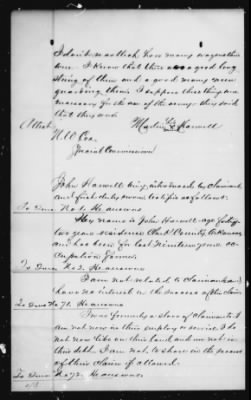 I do not recollect how many wagons there
were. I know that there was a good long
string of them and a good many men
guarding them. I suppose this thing was
necessary for the use of the army they said
that they was
Martin Harwell
Attest
H. C. Cox
Special Commissioner
John Harwell being introduced by Claimant
and first duly sworn testifies as follows:
To Inter No 1. He answered
My name is John Harwell age forty
two years residence Clark County Arkansas
and has been for last nineteen years oc-
cupation farmer.
To Inter No 2. He answered
I am not related to Claimant and
have no interest in the success of the claim
To Inter No 72. He answered
I was formerly a slave of Claimants. I
am not now in his employ or service. I do
not now live on his land and am not in
his debt. I am not to share in the proceeds
of this claim if allowed.
To Inter No 72. He answered